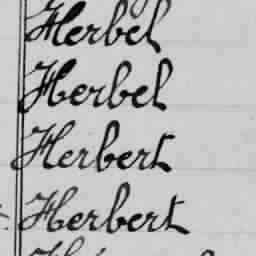 Herbel
Herbel
Herbert
Herbert